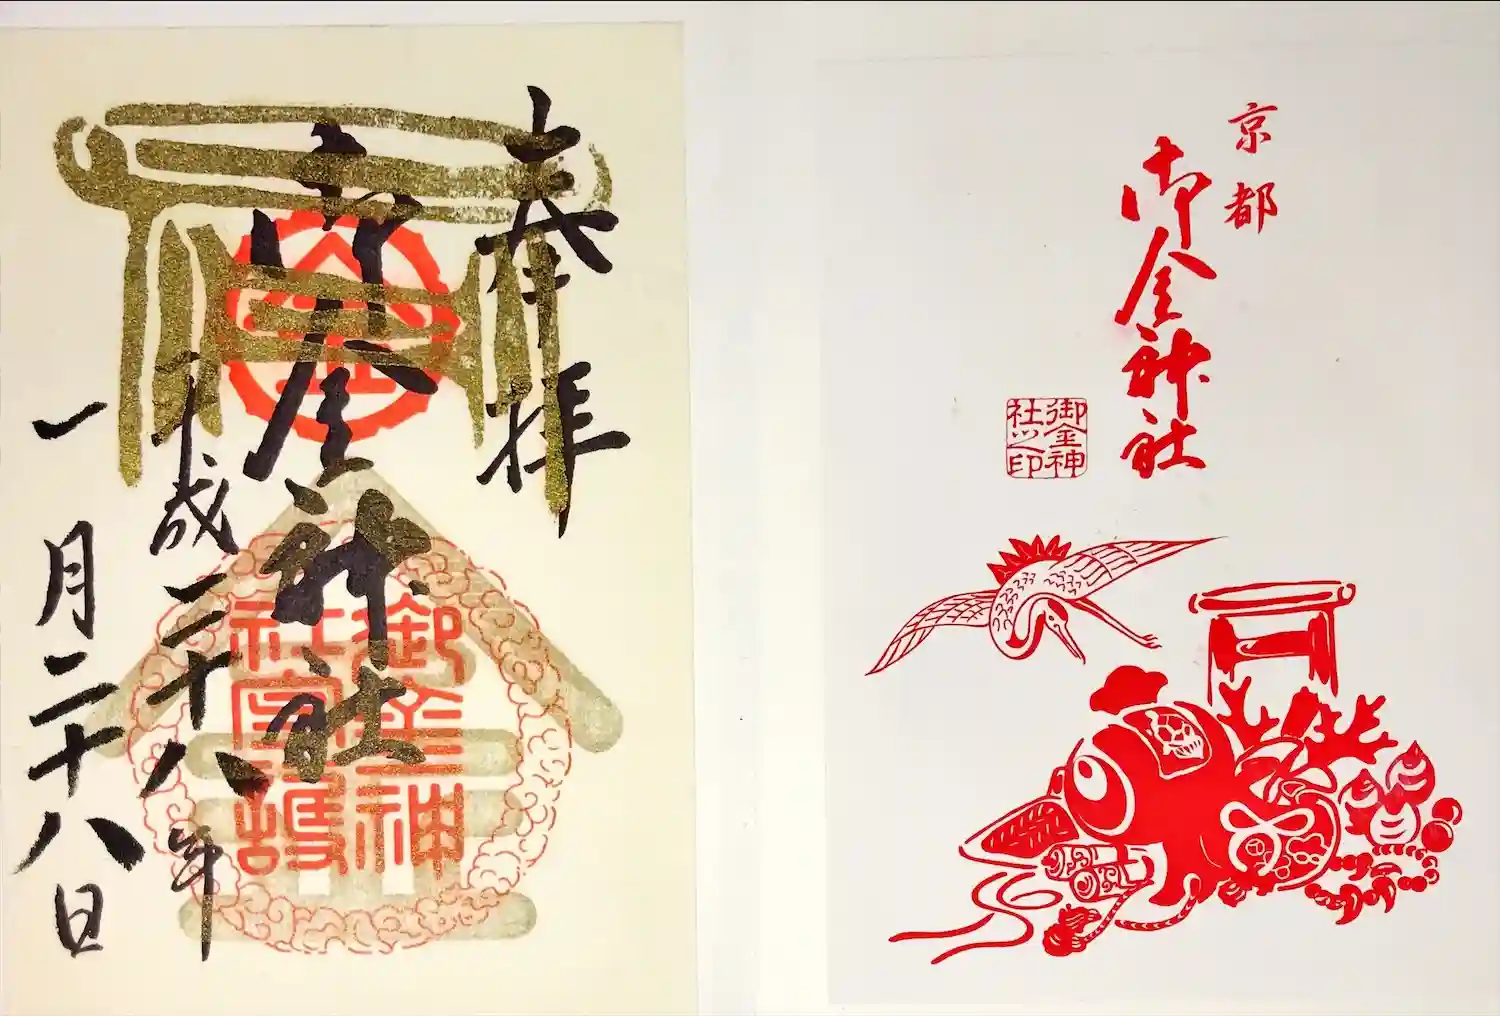 京都
御金神社
御金神
社之印
奉拝
御金神社
御金神
平成二十八年
一月二十八日